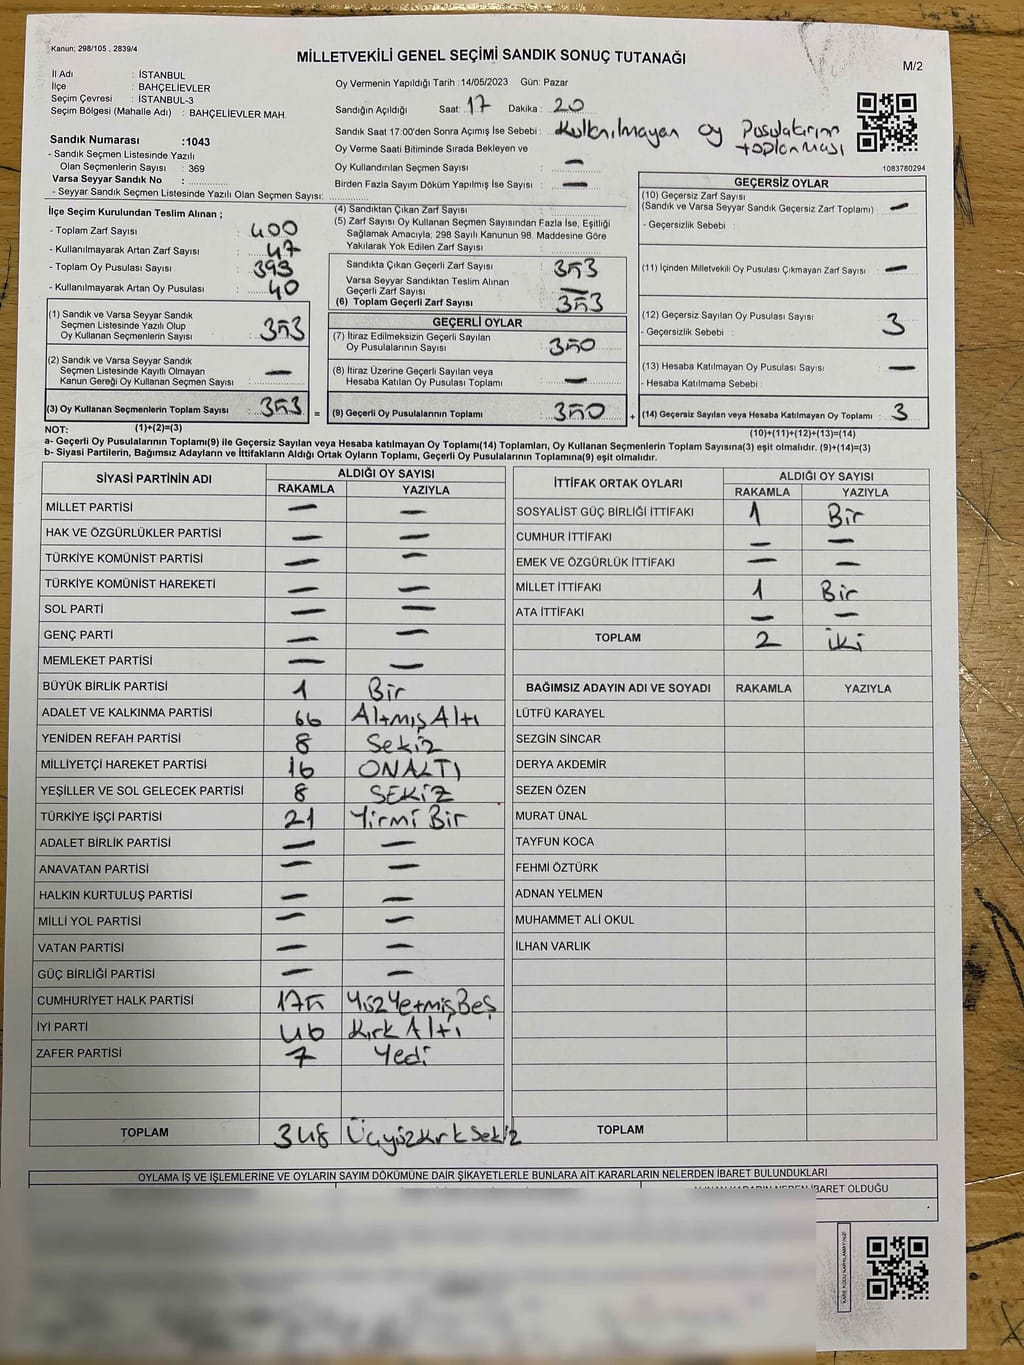 Kanun; 298/105 , 2839/4
MİLLETVEKİLİ GENEL SEÇİMİ SANDIK SONUÇ TUTANAĞI
M/2
İl Adı : İSTANBUL
İlçe : BAHÇELİEVLER
Seçim Çevresi : İSTANBUL-3
Seçim Bölgesi (Mahalle Adı) : BAHÇELİEVLER MAH.
Oy Vermenin Yapıldığı Tarih :14/05/2023 Gün: Pazar
Sandığın Açıldığı Saat: 17 Dakika : 20
Sandık Saat 17:00'den Sonra Açımış İse Sebebi : Kullanılmayan oy Pusulalarının toplanması
Oy Verme Saati Bitiminde Sırada Bekleyen ve
Oy Kullandırılan Seçmen Sayısı : —
Birden Fazla Sayım Döküm Yapılmış İse Sayısı : —
1083780294
Sandık Numarası :1043
- Sandık Seçmen Listesinde Yazılı
Olan Seçmenlerin Sayısı : 369
Varsa Seyyar Sandık No :
- Seyyar Sandık Seçmen Listesinde Yazılı Olan Seçmen Sayısı:
İlçe Seçim Kurulundan Teslim Alınan ;
- Toplam Zarf Sayısı : 400
- Kullanılmayarak Artan Zarf Sayısı : 47
- Toplam Oy Pusulası Sayısı : 393
- Kullanılmayarak Artan Oy Pusulası : 40
(1) Sandık ve Varsa Seyyar Sandık
Seçmen Listesinde Yazılı Olup
Oy Kullanan Seçmenlerin Sayısı : 353
(2) Sandık ve Varsa Seyyar Sandık
Seçmen Listesinde Kayıtlı Olmayan
Kanun Gereği Oy Kullanan Seçmen Sayısı : —
(3) Oy Kullanan Seçmenlerin Toplam Sayısı : 353
(4) Sandıktan Çıkan Zarf Sayısı :
(5) Zarf Sayısı Oy Kullanan Seçmen Sayısından Fazla İse, Eşitliği
Sağlamak Amacıyla; 298 Sayılı Kanunun 98. Maddesine Göre
Yakılarak Yok Edilen Zarf Sayısı :
Sandıkta Çıkan Geçerli Zarf Sayısı : 353
Varsa Seyyar Sandıktan Teslim Alınan
Geçerli Zarf Sayısı : —
(6) Toplam Geçerli Zarf Sayısı : 353
GEÇERLİ OYLAR
(7) İtiraz Edilmeksizin Geçerli Sayılan
Oy Pusulalarının Sayısı : 350
(8) İtiraz Üzerine Geçerli Sayılan veya
Hesaba Katılan Oy Pusulası Toplamı : —
= (9) Geçerli Oy Pusulalarının Toplamı : 350
GEÇERSİZ OYLAR
(10) Geçersiz Zarf Sayısı
(Sandık ve Varsa Seyyar Sandık Geçersiz Zarf Toplamı) : —
- Geçersizlik Sebebi :
(11) İçinden Milletvekili Oy Pusulası Çıkmayan Zarf Sayısı : —
(12) Geçersiz Sayılan Oy Pusulası Sayısı : 3
- Geçersizlik Sebebi :
(13) Hesaba Katılmayan Oy Pusulası Sayısı : —
- Hesaba Katılmama Sebebi :
+ (14) Geçersiz Sayılan veya Hesaba Katılmayan Oy Toplamı : 3
NOT: (1)+(2)=(3)
(10)+(11)+(12)+(13)=(14)
a- Geçerli Oy Pusulalarının Toplamı(9) ile Geçersiz Sayılan veya Hesaba katılmayan Oy Toplamı(14) Toplamları, Oy Kullanan Seçmenlerin Toplam Sayısına(3) eşit olmalıdır. (9)+(14)=(3)
b- Siyasi Partilerin, Bağımsız Adayların ve İttifakların Aldığı Ortak Oyların Toplamı, Geçerli Oy Pusulalarının Toplamına(9) eşit olmalıdır.
SİYASİ PARTİNİN ADI ALDIĞI OY SAYISI
RAKAMLA YAZIYLA
MİLLET PARTİSİ — —
HAK VE ÖZGÜRLÜKLER PARTİSİ — —
TÜRKİYE KOMÜNİST PARTİSİ — —
TÜRKİYE KOMÜNİST HAREKETİ — —
SOL PARTİ — —
GENÇ PARTİ — —
MEMLEKET PARTİSİ — —
BÜYÜK BİRLİK PARTİSİ 1 Bir
ADALET VE KALKINMA PARTİSİ 66 Altmış Altı
YENİDEN REFAH PARTİSİ 8 Sekiz
MİLLİYETÇİ HAREKET PARTİSİ 16 ONALTI
YEŞİLLER VE SOL GELECEK PARTİSİ 8 SEKİZ
TÜRKİYE İŞÇİ PARTİSİ 21 Yirmi Bir
ADALET BİRLİK PARTİSİ — —
ANAVATAN PARTİSİ — —
HALKIN KURTULUŞ PARTİSİ — —
MİLLİ YOL PARTİSİ — —
VATAN PARTİSİ — —
GÜÇ BİRLİĞİ PARTİSİ — —
CUMHURİYET HALK PARTİSİ 175 YüzYetmişBeş
İYİ PARTİ 46 Kırk Altı
ZAFER PARTİSİ 7 Yedi
TOPLAM 348 Üçyüzkırk sekiz
İTTİFAK ORTAK OYLARI ALDIĞI OY SAYISI
RAKAMLA YAZIYLA
SOSYALİST GÜÇ BİRLİĞİ İTTİFAKI 1 Bir
CUMHUR İTTİFAKI — —
EMEK VE ÖZGÜRLÜK İTTİFAKI — —
MİLLET İTTİFAKI 1 Bir
ATA İTTİFAKI — —
TOPLAM 2 iki
BAĞIMSIZ ADAYIN ADI VE SOYADI RAKAMLA YAZIYLA
LÜTFÜ KARAYEL
SEZGİN SİNCAR
DERYA AKDEMİR
SEZEN ÖZEN
MURAT ÜNAL
TAYFUN KOCA
FEHMİ ÖZTÜRK
ADNAN YELMEN
MUHAMMET ALİ OKUL
İLHAN VARLIK
TOPLAM
OYLAMA İŞ VE İŞLEMLERİNE VE OYLARIN SAYIM DÖKÜMÜNE DAİR ŞİKAYETLERLE BUNLARA AİT KARARLARIN NELERDEN İBARET BULUNDUKLARI
İBARET OLDUĞU
KARE KODU KARALAMAYINIZ!